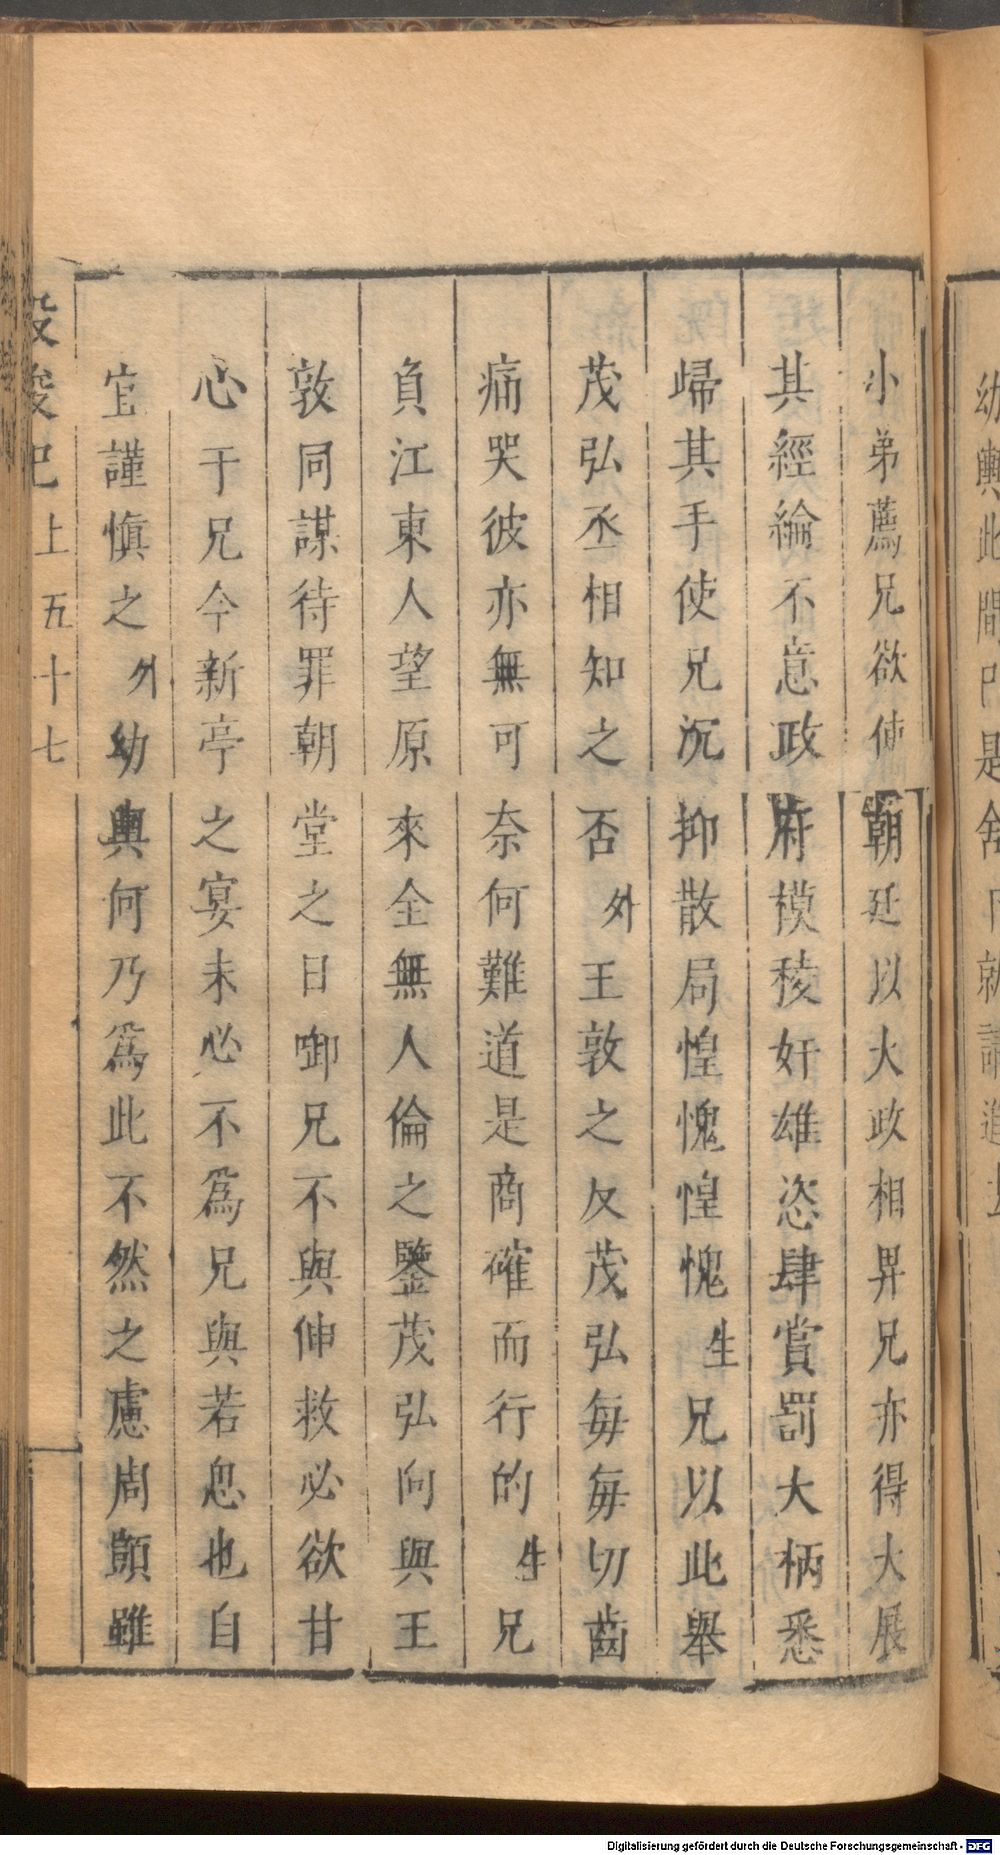 小弟薦兄欲使朝廷以大政相畀兄亦得大展
其經綸不意政府模稜奸雄恣肆賞罰大柄悉
歸其手使兄沉抑散局惶愧惶愧生兄以此舉
茂弘丞相知之否外王敦之反茂弘每每切齒
痛哭彼亦無可奈何難道是商確而行的生兄
負江東人望原來全無人倫之鑒茂弘向與王
敦同謀待罪朝堂之日啣兄不與伸救必欲甘
心于兄今新亭之宴未必不爲兄與若思也自
宜謹慎之外幼輿何乃爲此不然之慮周顗雖
投梭記上 五十七
Digitalisierung gefördert durch die Deutsche Forschungsgemeinschaft - DFG